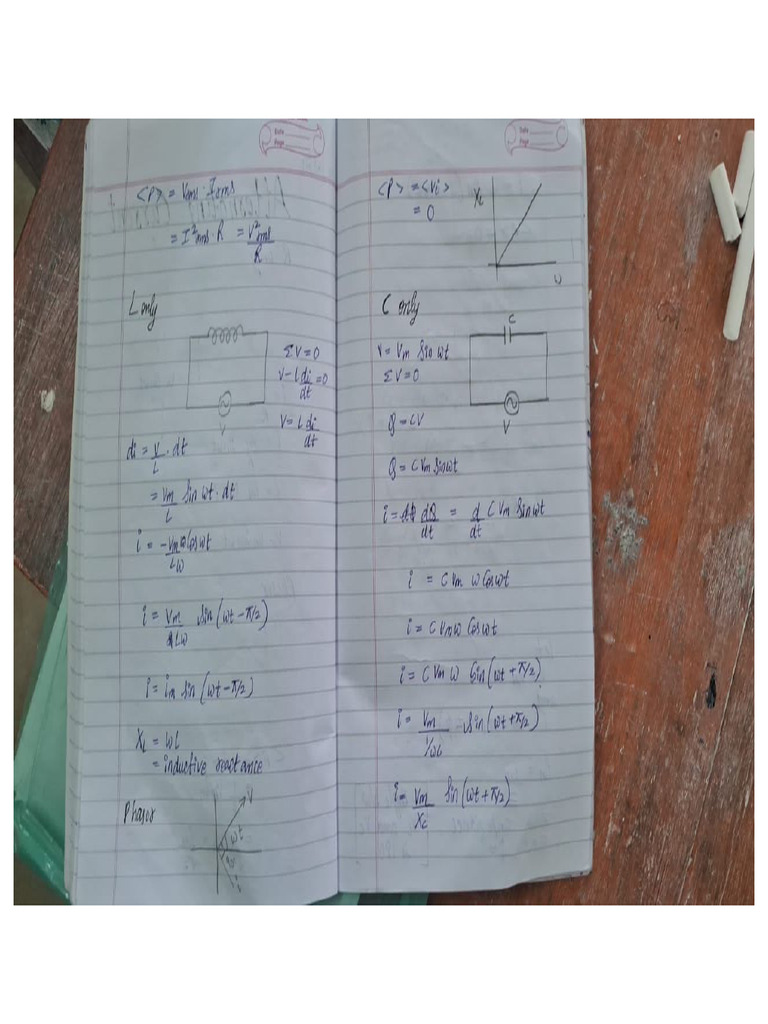 Date
Page
<P> = Vrms · Irms
= I²rms · R = V²rms/R
L only
ΣV=0
V - L di/dt = 0
V = L di/dt
V
di = V/L · dt
= Vm/L sin ωt · dt
i = -Vm cosωt/Lω
i = Vm/Lω sin(ωt - π/2)
i = im sin(ωt - π/2)
XL = ωL
= inductive reactance
Phasor
V
ωt
i
Date
Page
<P> = <Vi>
= 0
XL
ω
C only
C
V = Vm sin ωt
ΣV=0
V
Q = CV
Q = C Vm sinωt
i = dQ/dt = d/dt C Vm sin ωt
i = C Vm ω cosωt
i = C Vm ω cosωt
i = C Vm ω sin(ωt + π/2)
i = Vm/1/ωC sin(ωt + π/2)
i = Vm/Xc sin(ωt + π/2)